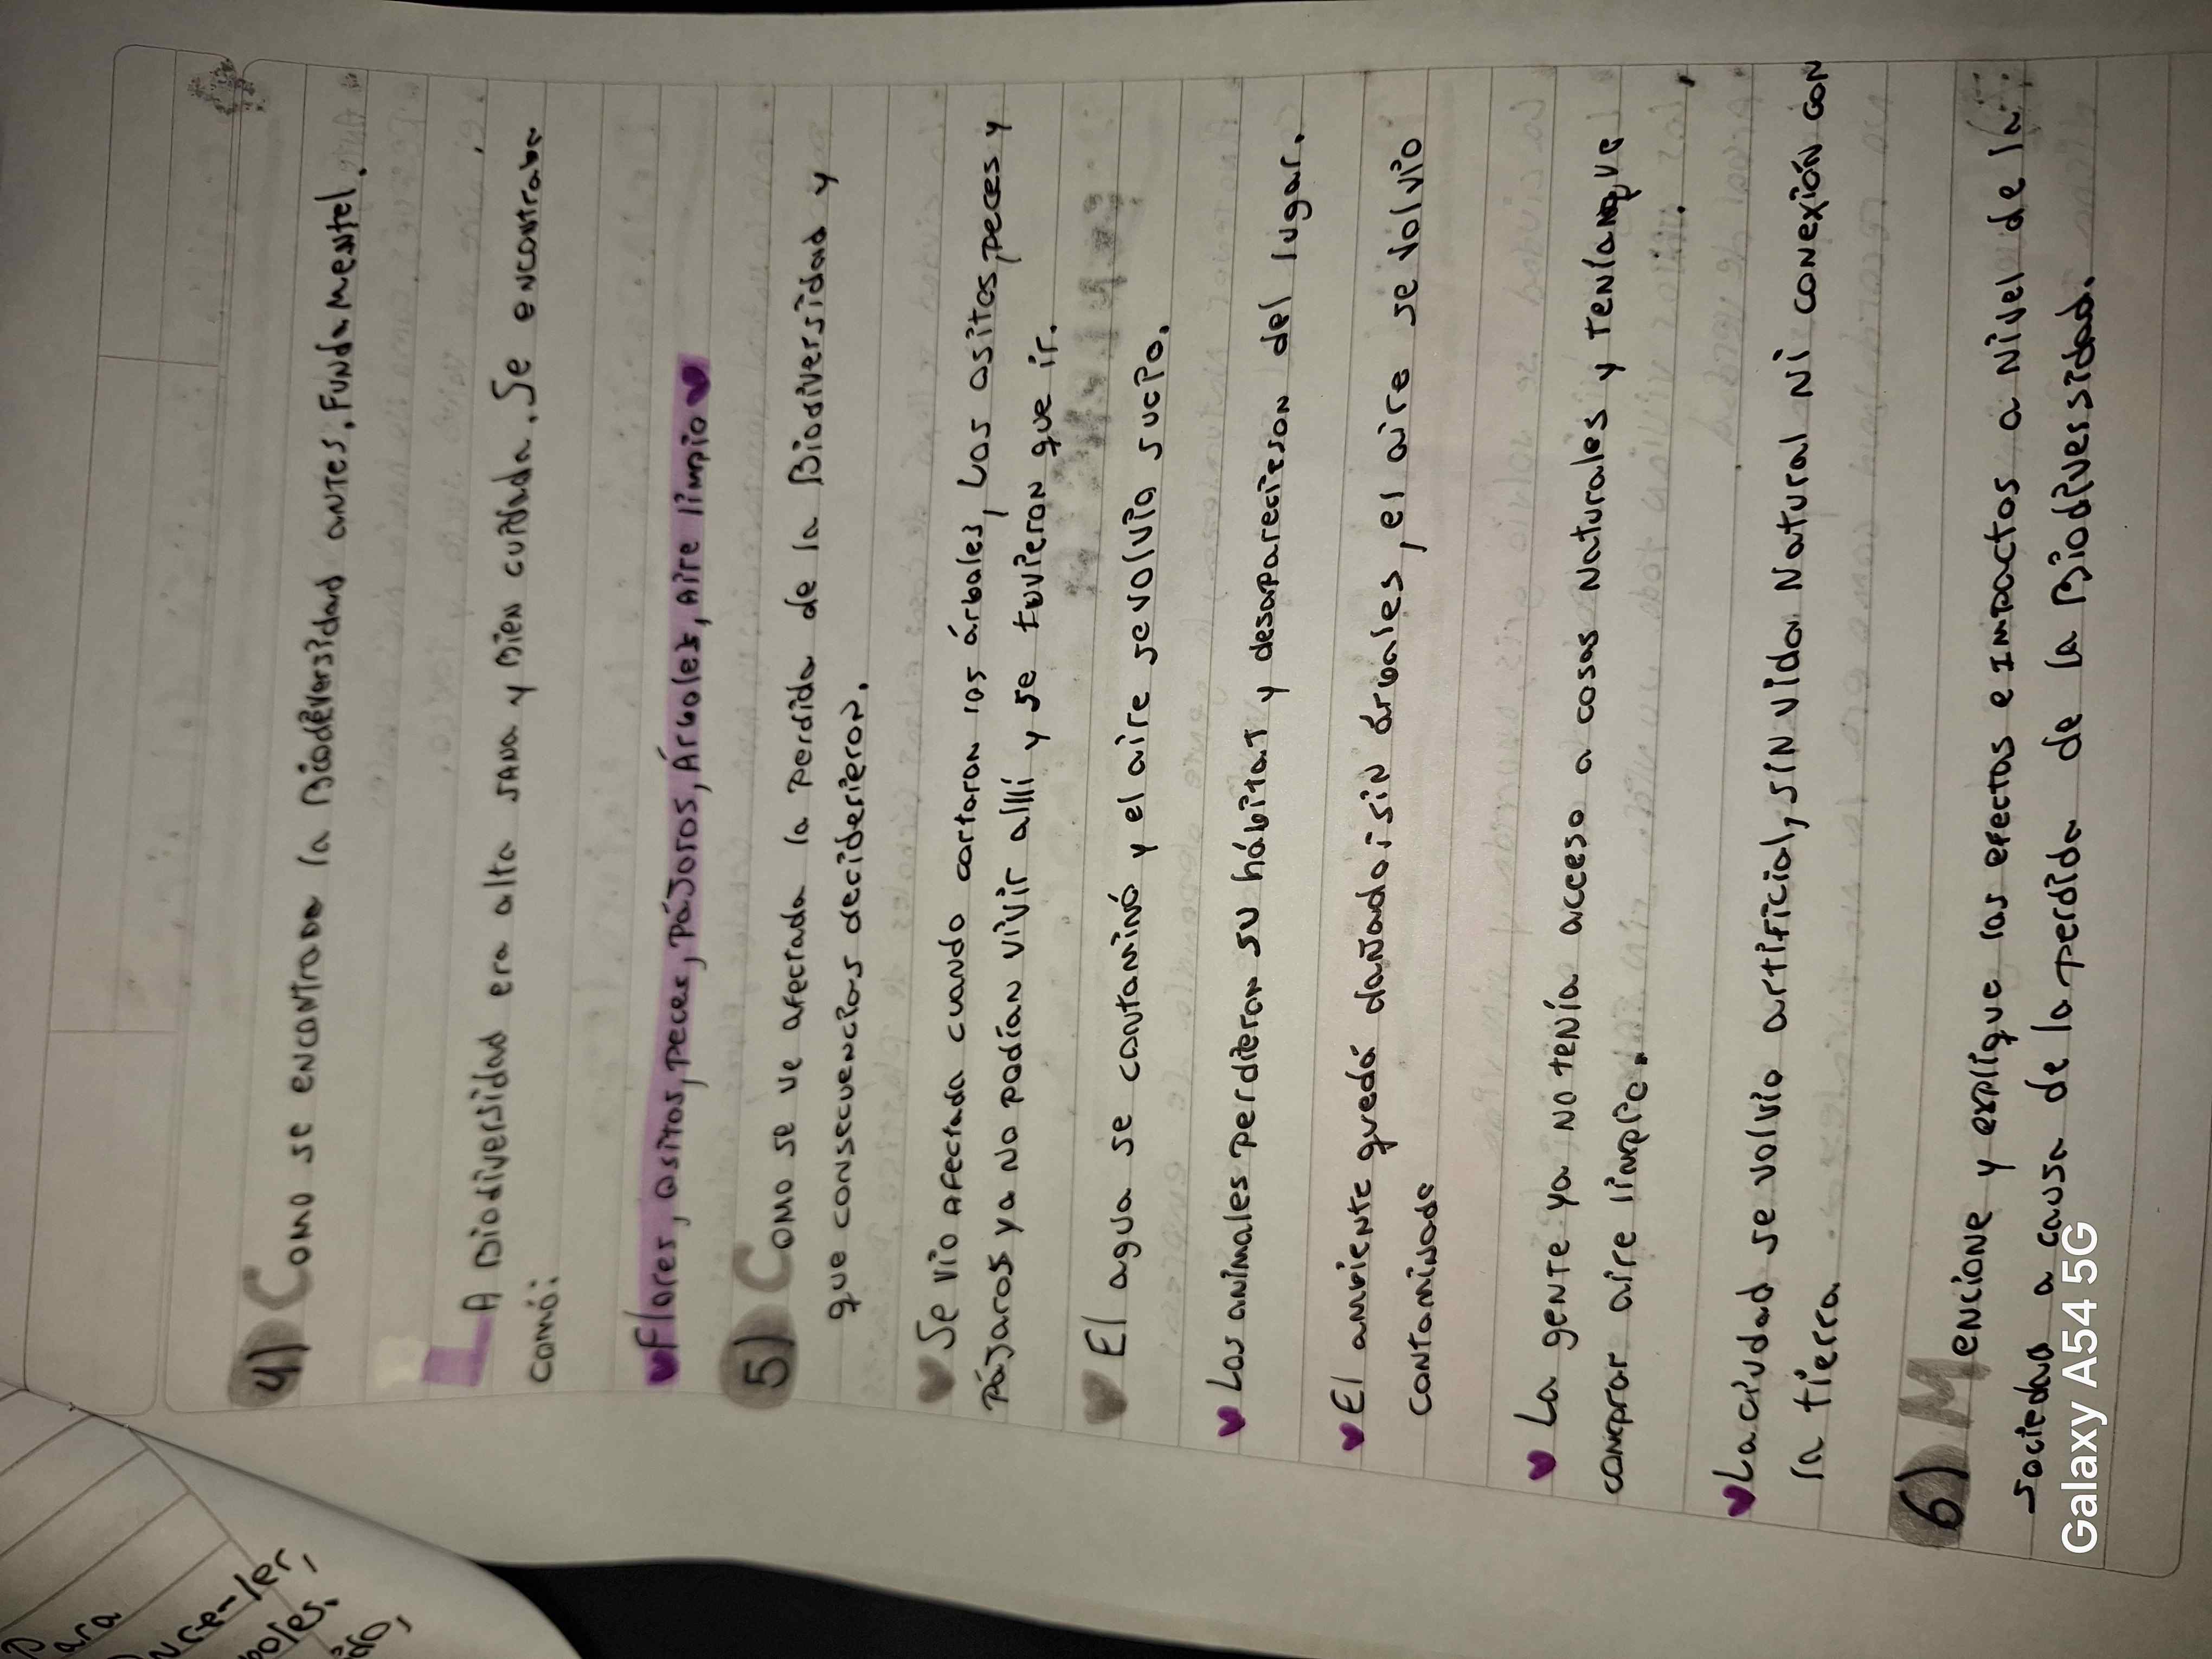 4) Como se encontraba la Biodiversidad antes, Fundamentel.
LA Biodiversidad era alta sana y Bien cuidada. Se encontraba
comó:
Flores, ositos, peces, pájoros, Árboles, Aire limpio
5) Como se ve afectada la perdida de la Biodiversidad y
que consecuencias decidierieron.
Se vio afectada cuando cortaron los árboles, Los ositos, peces y
pájaros ya no podían vivir allí y se tuvieron que ir.
El agua se contaminó y el aire se volvía sucio.
Los animales perdieron su hábitat y desaparecieron del lugar.
El ambiente quedó dañado: sin árboles, el aire se volvio
contaminado
La gente ya no tenía acceso a cosas Naturales y tenían que
comprar aire limpio.
La ciudad se volvio artificial, sin vida Natural Ni conexión con
la tierra
6) Mencione y explique los efectos e impactos a Nivel de la
sociedad a causa de la perdida de la Biodiversidad.
Para
nce-ler,
boles.
Galaxy A54 5G